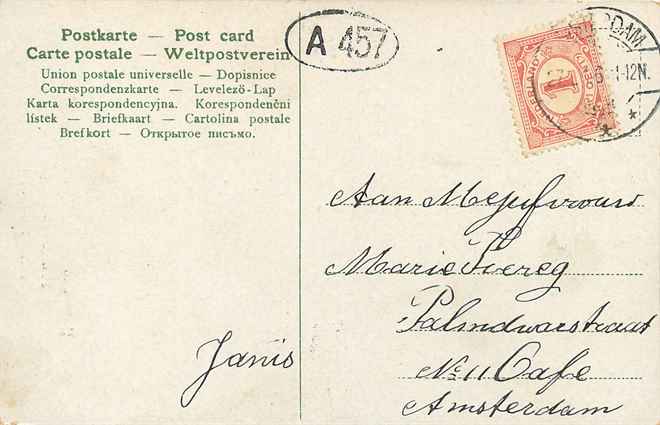 Postkarte — Post card
Carte postale — Weltpostverein
Union postale universelle — Dopisnice
Correspondenzkarte — Levelező-Lap
Karta korespondencyjna. Korespondenční
lístek — Briefkaart — Cartolina postale
Brefkort — Открытое письмо.
A 457
DAM
1-12N.
NEDERLAND
1
CENT
Aan Mejufvrouw
Marie
Palmdwarsstraat
No 11 Cafe
Amsterdam
Janis